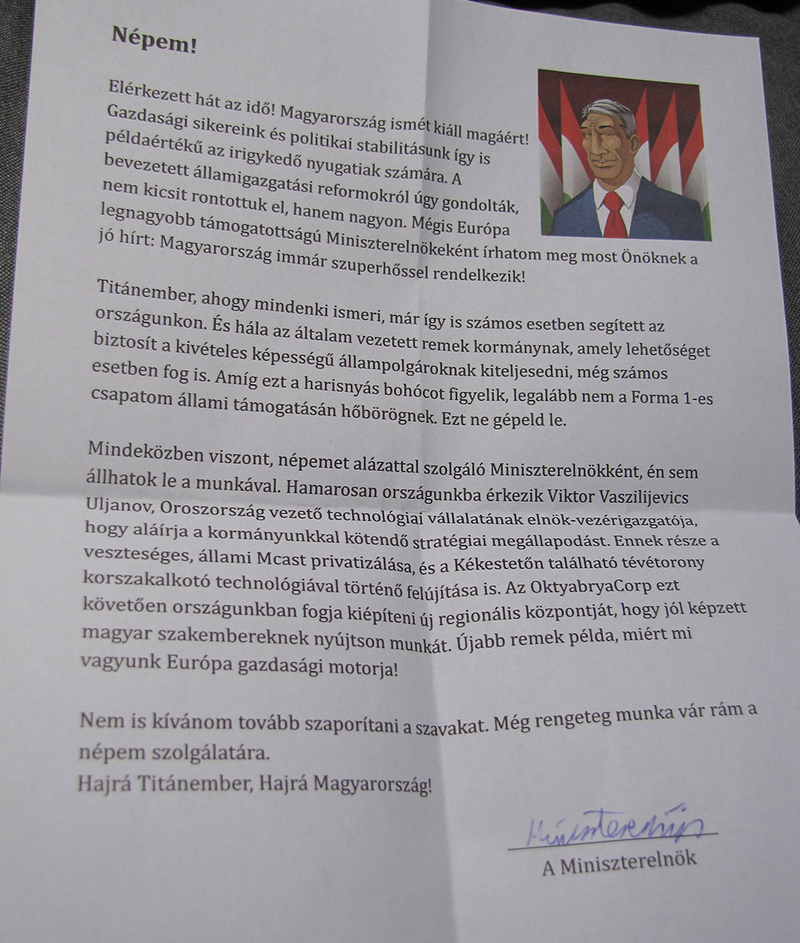 Népem!
Elérkezett hát az idő! Magyarország ismét kiáll magáért!
Gazdasági sikereink és politikai stabilitásunk így is
példaértékű az irigykedő nyugatiak számára. A
bevezetett államigazgatási reformokról úgy gondolták,
nem kicsit rontottuk el, hanem nagyon. Mégis Európa
legnagyobb támogatottságú Miniszterelnökeként írhatom meg most Önöknek a
jó hírt: Magyarország immár szuperhőssel rendelkezik!
Titánember, ahogy mindenki ismeri, már így is számos esetben segített az
országunkon. És hála az általam vezetett remek kormánynak, amely lehetőséget
biztosít a kivételes képességű állampolgároknak kiteljesedni, még számos
esetben fog is. Amíg ezt a harisnyás bohócot figyelik, legalább nem a Forma 1-es
csapatom állami támogatásán hőbörögnek. Ezt ne gépeld le.
Mindeközben viszont, népemet alázattal szolgáló Miniszterelnökként, én sem
állhatok le a munkával. Hamarosan országunkba érkezik Viktor Vaszilijevics
Uljanov, Oroszország vezető technológiai vállalatának elnök-vezérigazgatója,
hogy aláírja a kormányunkkal kötendő stratégiai megállapodást. Ennek része a
veszteséges, állami Mcast privatizálása, és a Kékestetőn található tévétorony
korszakalkotó technológiával történő felújítása is. Az OktyabryaCorp ezt
követően országunkban fogja kiépíteni új regionális központját, hogy jól képzett
magyar szakembereknek nyújtson munkát. Újabb remek példa, miért mi
vagyunk Európa gazdasági motorja!
Nem is kívánom tovább szaporítani a szavakat. Még rengeteg munka vár rám a
népem szolgálatára.
Hajrá Titánember, Hajrá Magyarország!
A Miniszterelnök